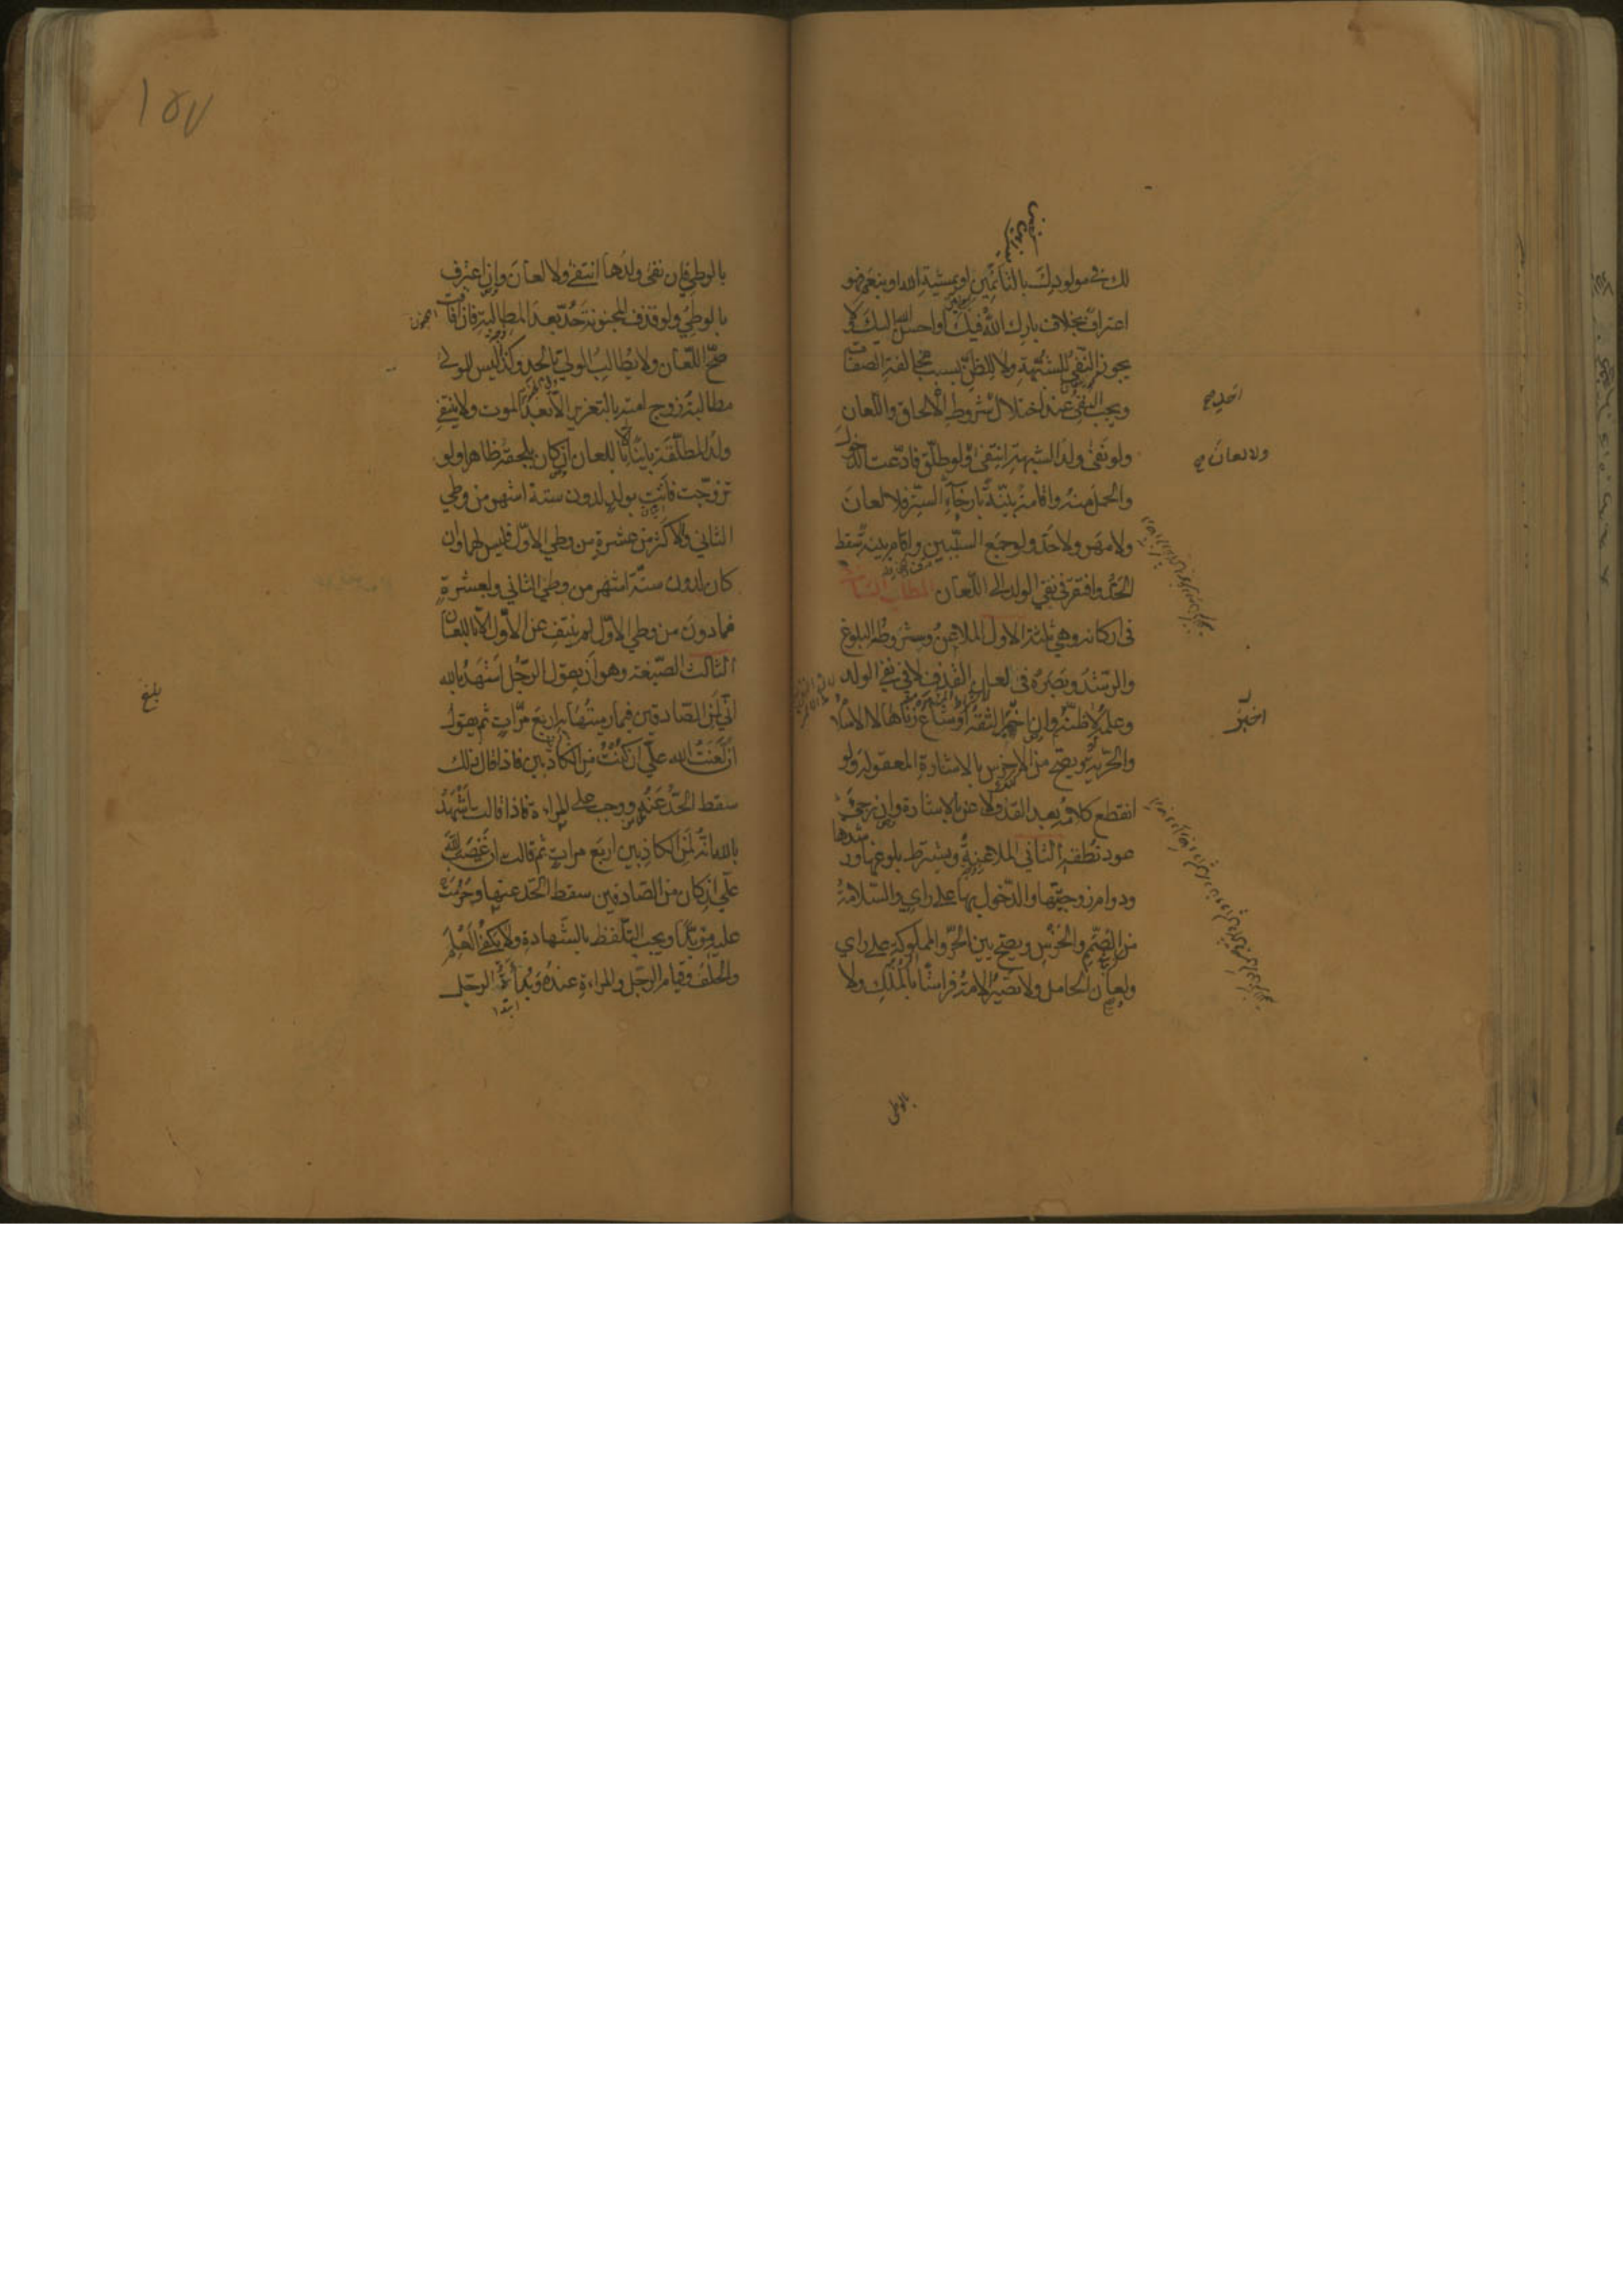 لك في مولودك بالتأمين او بمشية الله او بنعم فهو
اعتراف بخلاف بارك الله فيك واحسن الله اليك ولا
يجوز النفي للشبهة ولا للظن بسبب مخالفة الصفات
ويجب النفي عند اختلال شروط الالحاق واللعان
ولو نفى ولد الشبهة انتفى ولو طلق فادعت الدخول
والحمل منه واقامت بينة بارخاء الستر فلا لعان
ولا مهر ولا حد ولو جمع السببين واقام بينة سقط
الحد وافتقر في نفي الولد الى اللعان المطلب الثاني
في اركانه وهي ثلثة الاول الملاعن وشروطه البلوغ
والرشد وبصره في لعان القذف لا في نفي الولد
وعلمه لا ظنه وان اخبر الثقة او شاع زناها لا الاسلام
والحرية ويصح من الاخرس بالاشارة المعقولة ولو
انقطع كلامه بعد القذف لاعن بالاشارة وان رجي
عود نطقه الثاني الملاعنة ويشترط بلوغها ور
شدها
ودوام زوجيتها والدخول بها على راي والسلامة
من الصمم والخرس ويصح بين الحر والمملوكة على راي
ولعان الحامل ولا تصير الامة فراشا بالملك ولا
احد صح
ولا لعان صح
اخبر
بالوطي
١٥٧
بالوطي فان نفى ولدها انتفى ولا لعان وان اعترف
بالوطي ولو قذف المجنونة حد بعد المطالبة فان افاقت
صح اللعان ولا يطالب الولي بالحد وكذا ليس للمولى
مطالبة زوج امته بالتعزير الا بعد الموت ولا ينتفي
ولد المطلقة باينا الا باللعان ان كان يلحقه ظاهرا ولو
تزوجت فاتت بولد لدون ستة اشهر من وطي
الثاني ولاكثر من عشرة من وطي الاول فليس لهما وان
كان لدون ستة اشهر من وطي الثاني ولعشرة
فما دون من وطي الاول لم ينتف عن الاول الا باللعان
الثالث الصيغة وهو ان يقول الرجل اشهد بالله
اني لمن الصادقين فيما رميتها به اربع مرات ثم يقول
ان لعنت الله علي ان كنت من الكاذبين فاذا قال ذلك
سقط الحد عنه ووجب على المراءة فاذا قالت اشهد
بالله انه لمن الكاذبين اربع مرات ثم قالت ان غضب الله
علي ان كان من الصادقين سقط الحد عنها وحرمت
عليه مؤبدا ويجب التلفظ بالشهادة ولا يكفي العلم
والحلف وقيام الرجل والمراءة عنده وبدأة الرجل
بلغ